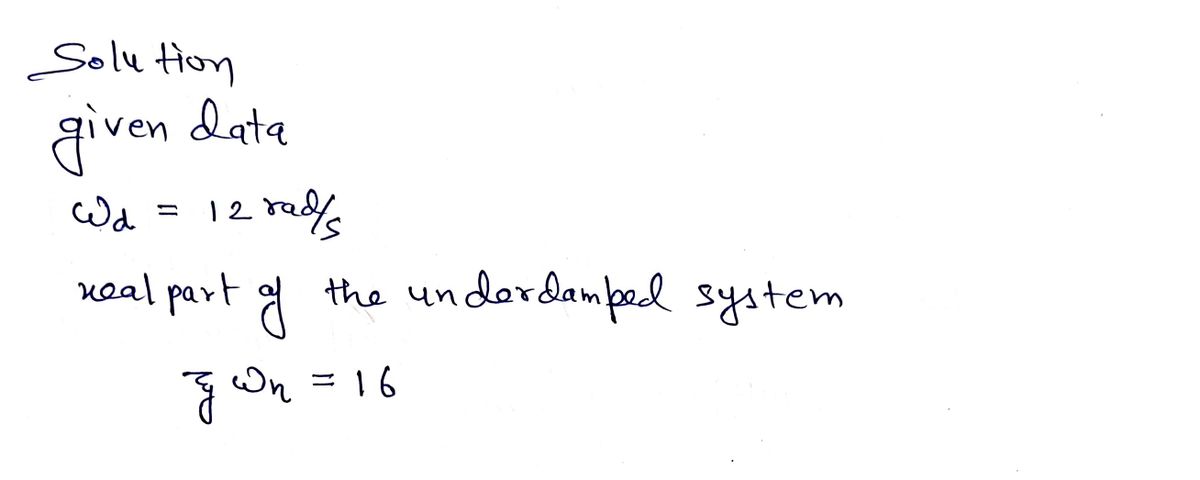 Solution
given data
ωd = 12 rad/s
real part of the underdamped system
ξ ωn = 16